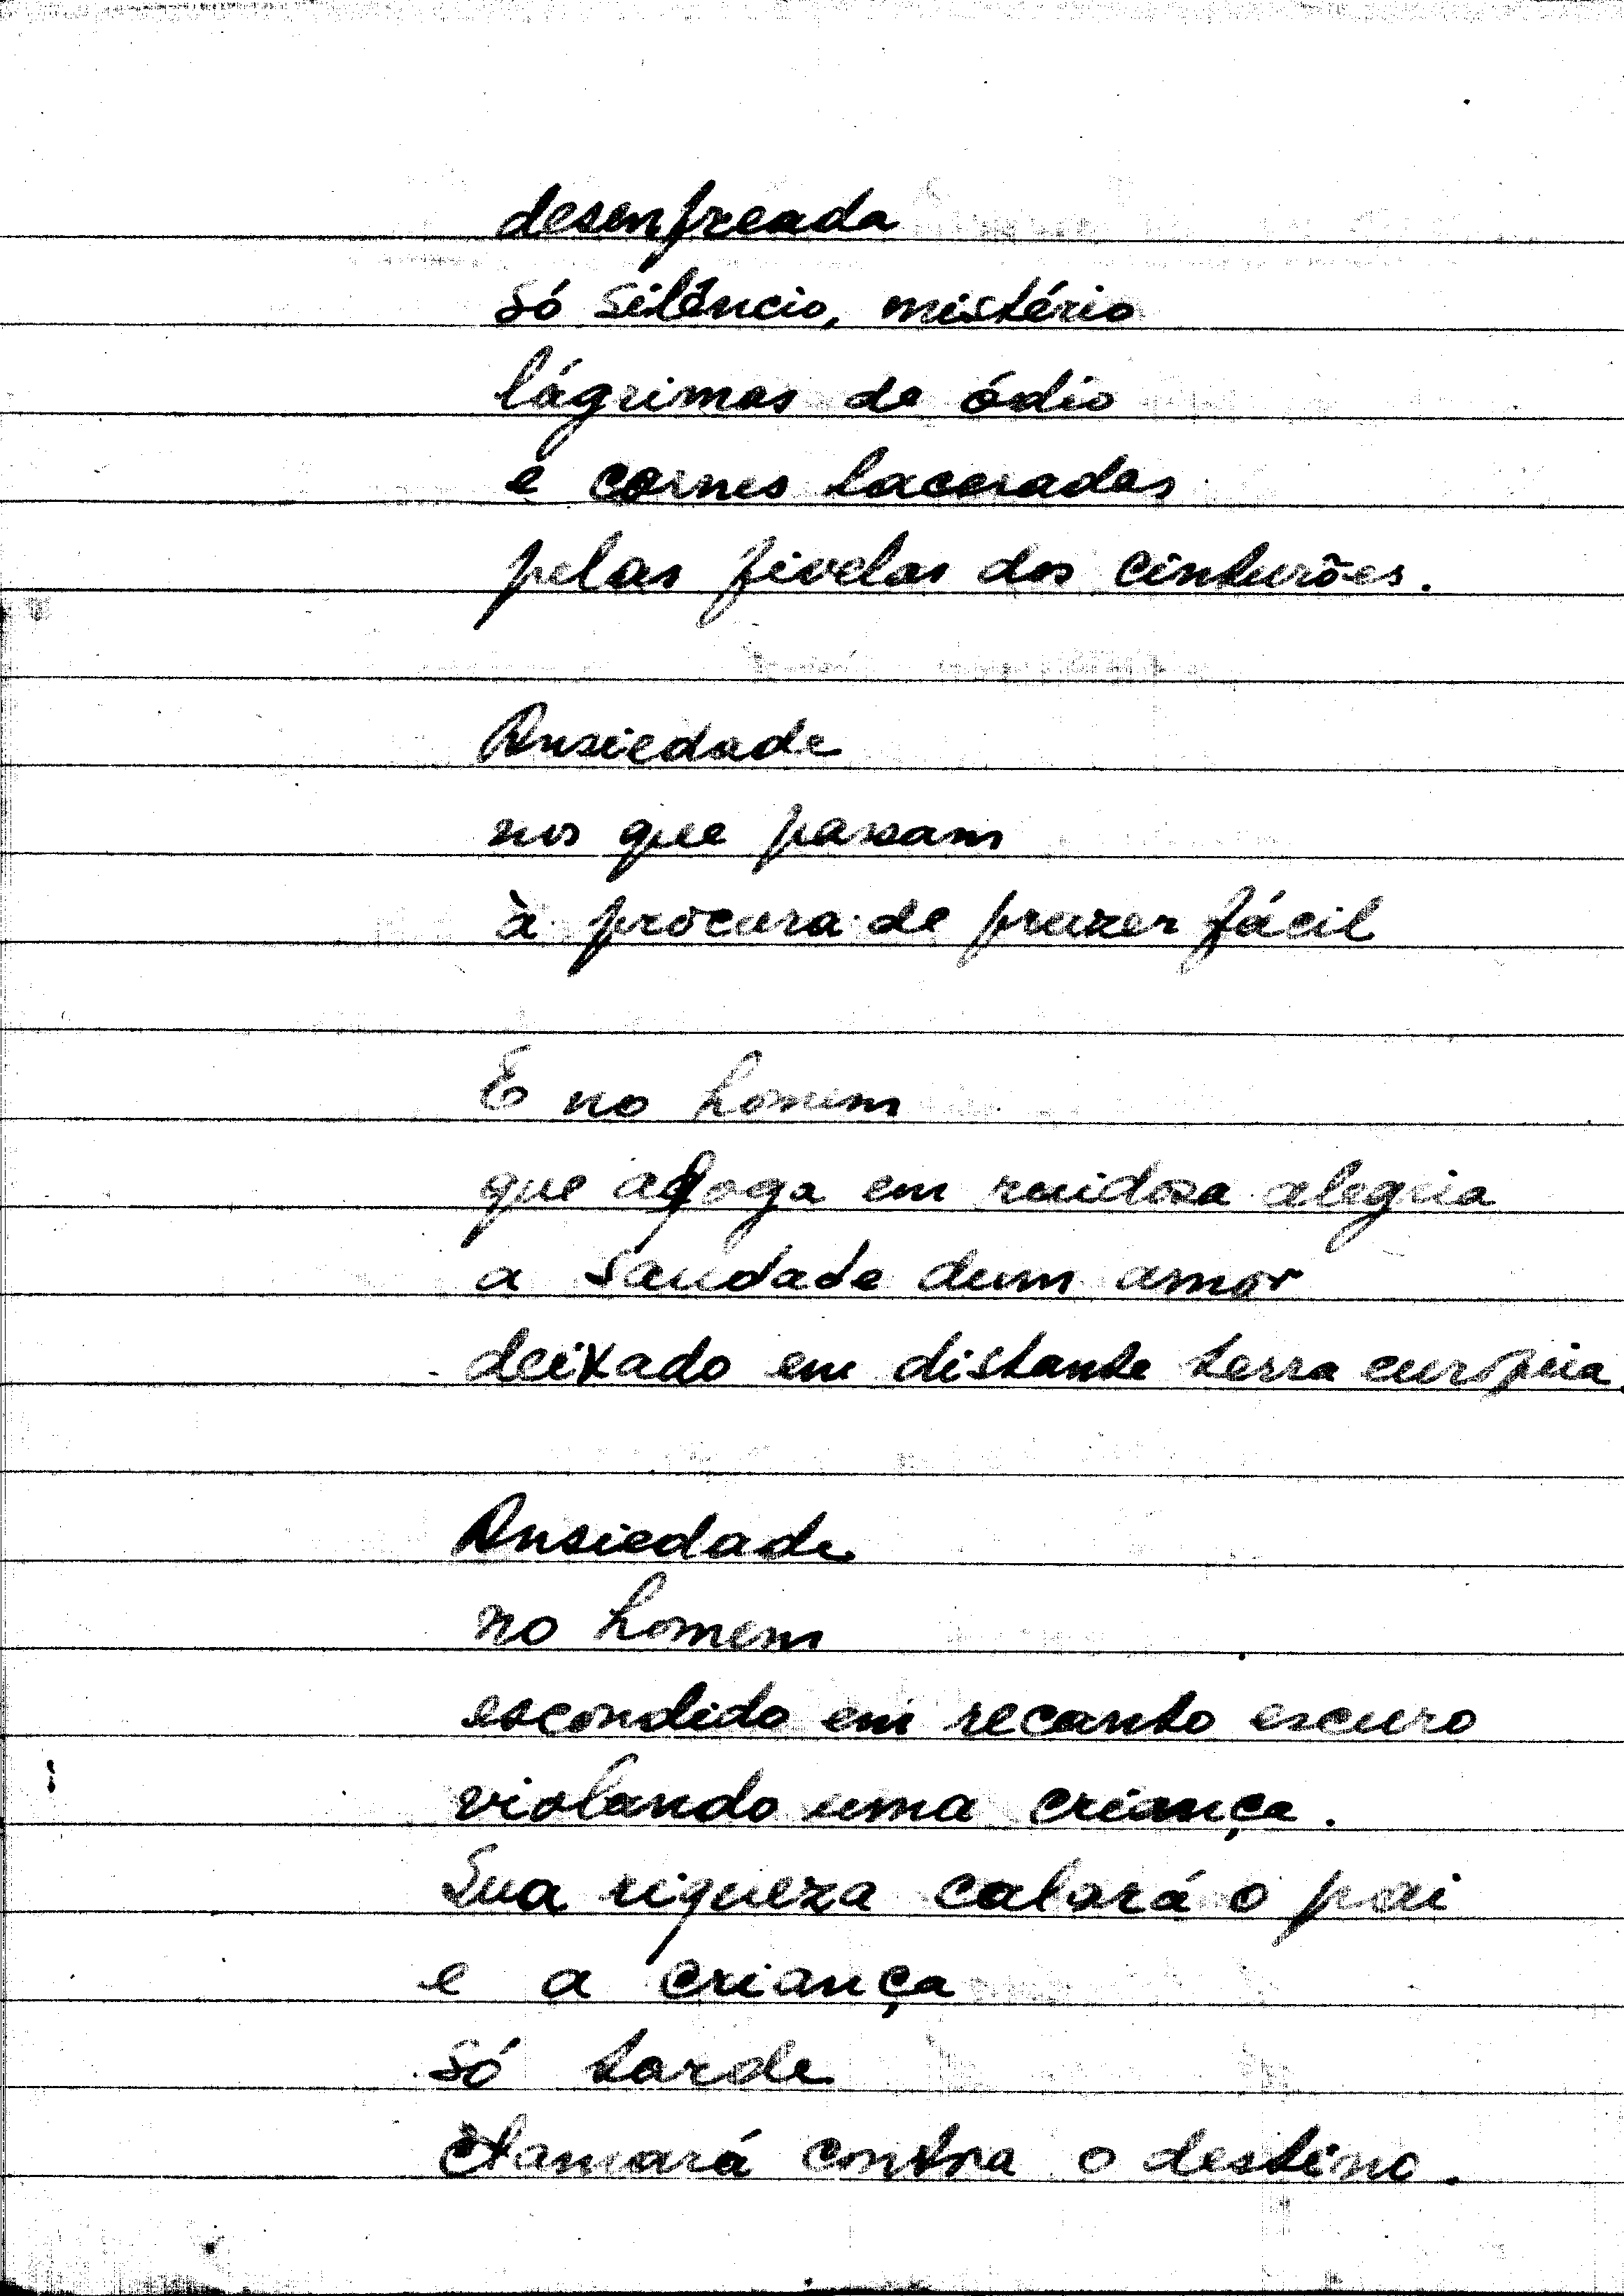 desenfreada
só silêncio, mistério
lágrimas de ódio
e carnes laceradas
pelas fivelas dos cinturões.
Ansiedade
nos que passam
à procura de prazer fácil
E no homem
que afoga em ruidosa alegria
a saudade dum amor
deixado em distante terra européia.
Ansiedade
no homem
escondido em recanto escuro
violando uma criança.
Sua riqueza calará o pai
e a criança
só tarde
clamará contra o destino.